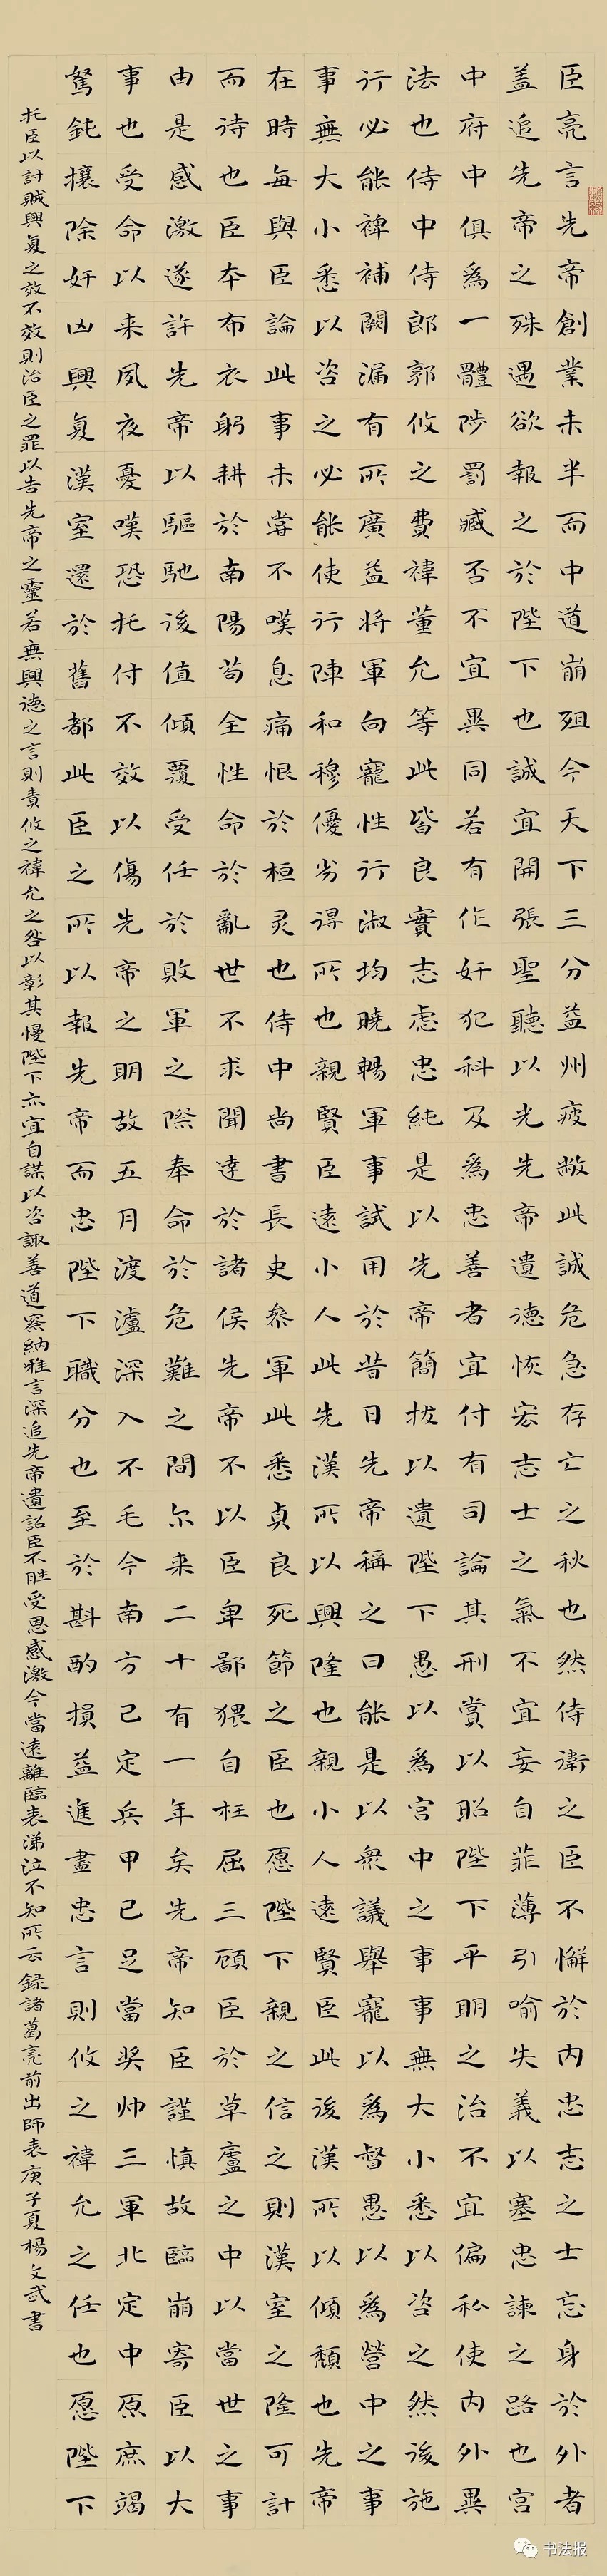 臣亮言先帝創業未半而中道崩殂今天下三分益州疲敝此誠危急存亡之秋也然侍衛之臣不懈於內忠志之士忘身於外者
盖追先帝之殊遇欲報之於陛下也誠宜開張聖聽以光先帝遺德恢宏志士之氣不宜妄自菲薄引喻失義以塞忠諫之路也宮
中府中俱爲一體陟罰臧否不宜異同若有作奸犯科及爲忠善者宜付有司論其刑賞以昭陛下平明之治不宜偏私使內外異
法也侍中侍郎郭攸之費禕董允等此皆良實志虑忠純是以先帝簡拔以遺陛下愚以爲宮中之事事無大小悉以咨之然後施
行必能裨補闕漏有所廣益將軍向寵性行淑均曉暢軍事試用於昔日先帝稱之曰能是以衆議舉寵以爲督愚以爲營中之事
事無大小悉以咨之必能使行陣和穆優劣得所也親賢臣遠小人此先漢所以興隆也親小人遠賢臣此後漢所以傾頹也先帝
在時每與臣論此事未嘗不嘆息痛恨於桓灵也侍中尚書長史參軍此悉貞良死節之臣也愿陛下親之信之則漢室之隆可計
而待也臣本布衣躬耕於南陽苟全性命於亂世不求聞達於諸侯先帝不以臣卑鄙猥自枉屈三顧臣於草廬之中以當世之事
由是感激遂許先帝以驅馳後值傾覆受任於敗軍之際奉命於危難之間尔来二十有一年矣先帝知臣謹慎故臨崩寄臣以大
事也受命以来夙夜憂嘆恐托付不效以傷先帝之明故五月渡瀘深入不毛今南方已定兵甲已足當奖帅三軍北定中原庶竭
駑鈍攘除奸凶興復漢室還於舊都此臣之所以報先帝而忠陛下職分也至於斟酌損益進盡忠言則攸之禕允之任也愿陛下
托臣以討賊興復之效不效則治臣之罪以告先帝之靈若無興德之言則責攸之禕允之咎以彰其慢陛下亦宜自謀以咨諏善道察納雅言深追先帝遺詔臣不勝受恩感激今當遠離臨表涕泣不知所云錄諸葛亮前出師表庚子夏楊文武書
书法报